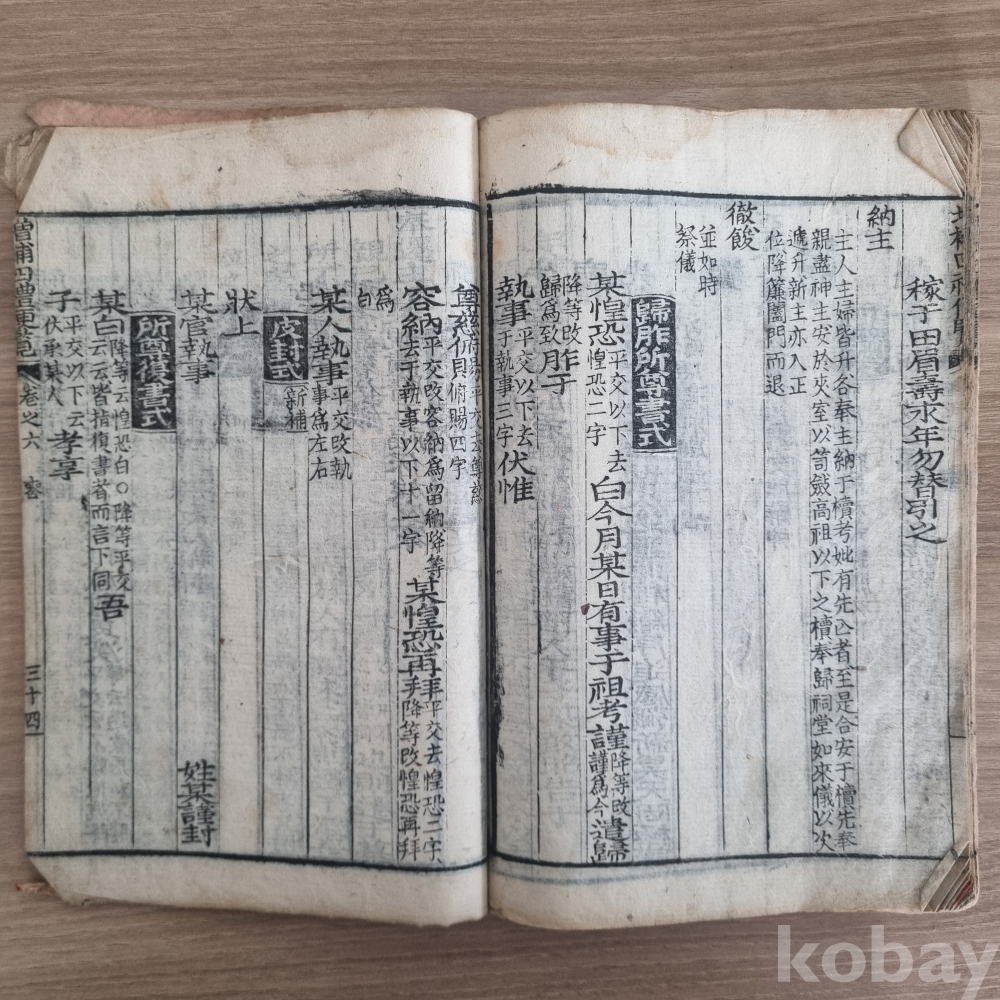 稼于田眉壽永年勿替引之
納主
主人主婦皆升各奉主納于櫝考妣有先入者至是合安于櫝先奉
親盡神主安於夾室以笥斂高祖以下之櫝奉歸祠堂如來儀以次
遞升新主亦入正
位降簾闔門而退
徹餕
並如時
祭儀
歸胙所尊書式
某惶恐平交以下去惶恐二字白今月某日有事于祖考謹降等改謹爲今遣歸
降等改歸爲致胙于
執事平交以下去于執事三字伏惟
尊慈俯賜平交去尊慈俯賜四字
容納平交改容納爲留納降等去于執事以下十一字某惶恐再拜平交去惶恐二字降等改惶恐再拜
爲白
某人執事平交改執事爲左右
皮封式新補
狀上
某官執事 姓某謹封
所尊復書式
某白降等云惶恐白○降等平交云云皆指復書者而言下同吾
子平交以下云伏承某人孝享
增補四禮便覽 卷之六 三十四
kobay